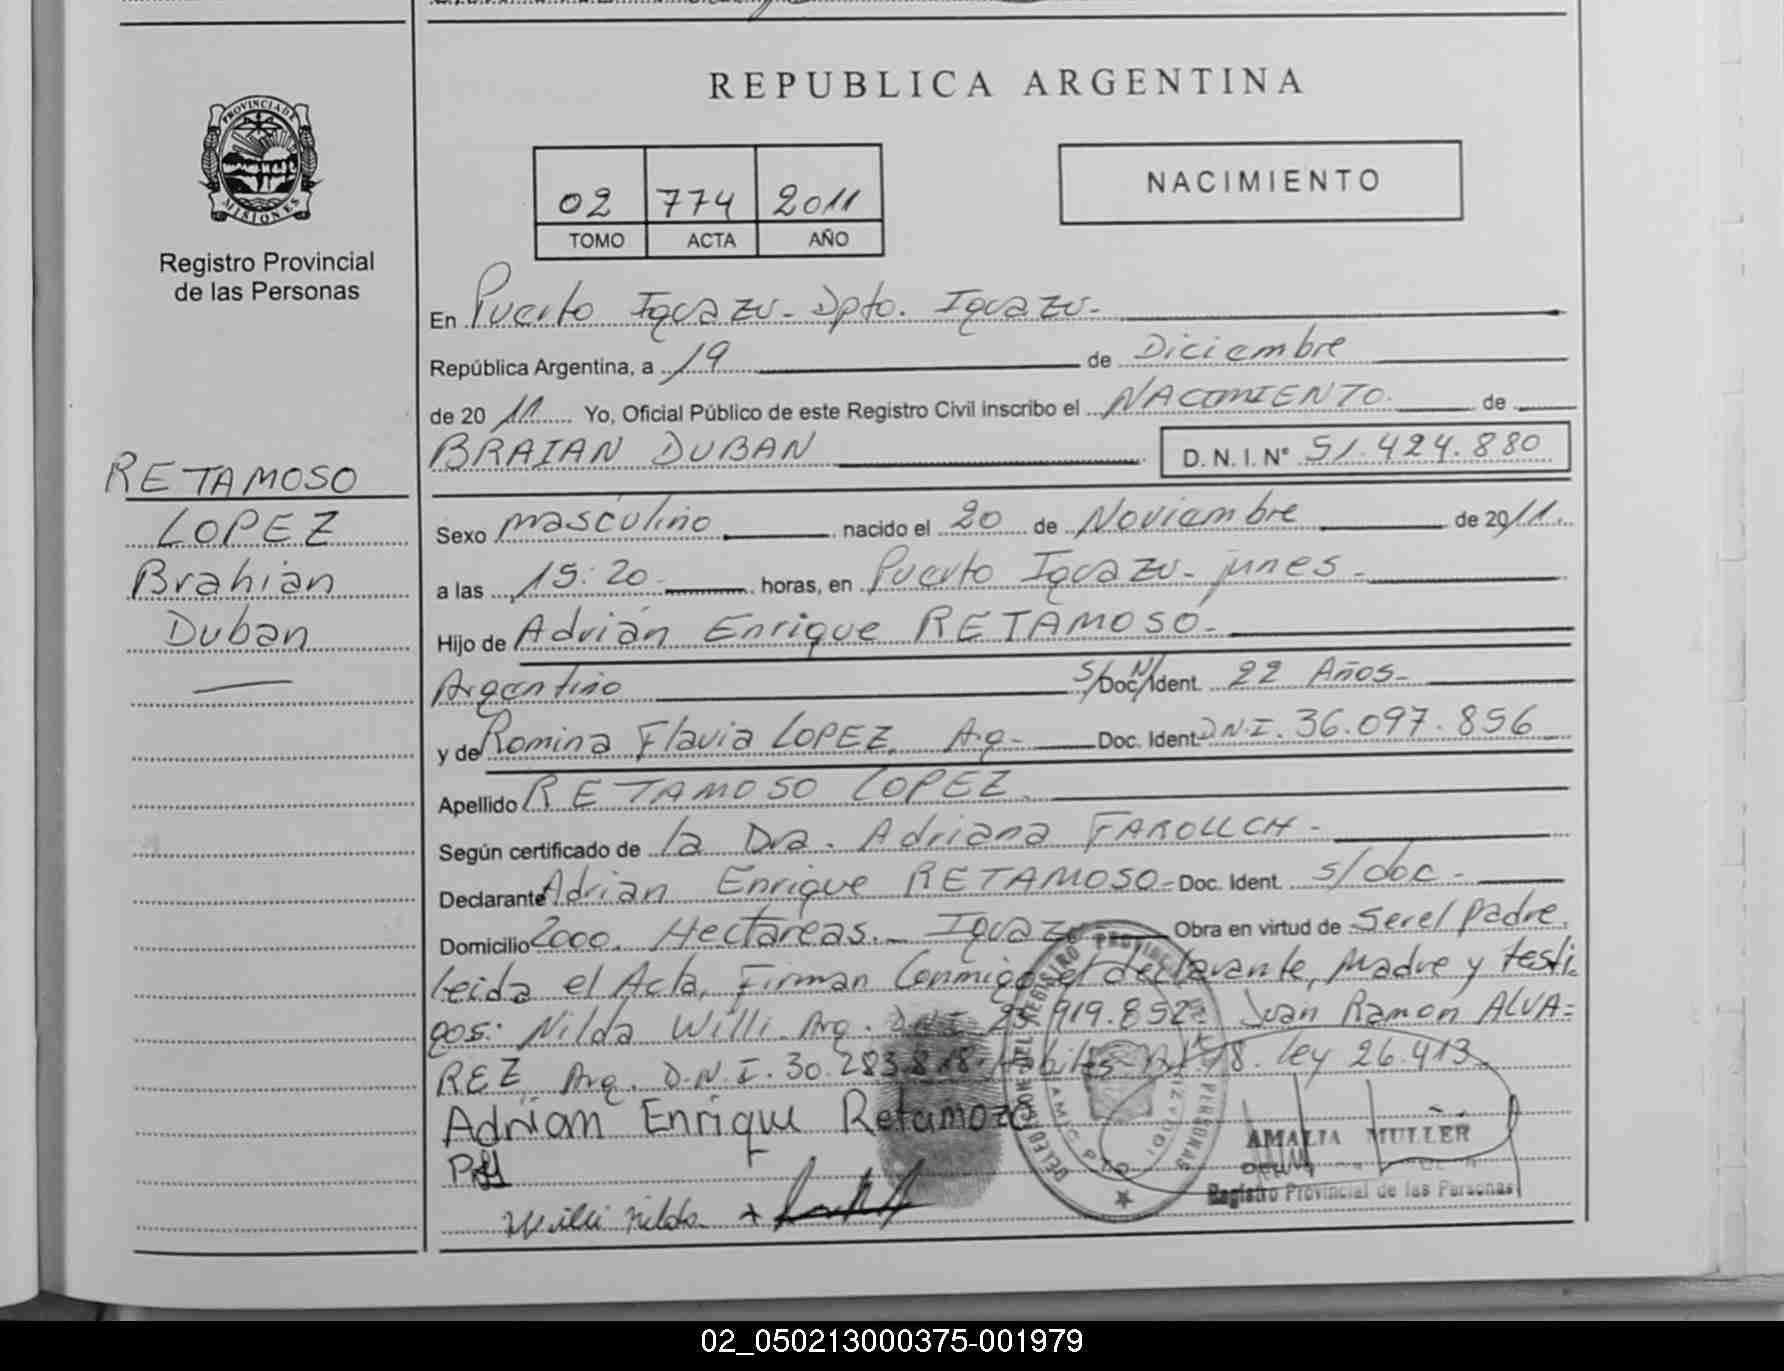 REPUBLICA ARGENTINA
PROVINCIA DE
MISIONES
Registro Provincial
de las Personas
02 774 2011
TOMO ACTA AÑO
NACIMIENTO
En Puerto Iguazu - Dpto. Iguazu -
República Argentina, a 19 de Diciembre
de 20 11 Yo, Oficial Público de este Registro Civil inscribo el NACIMIENTO de
BRAIAN DUBAN D. N. I. N° 51.424.880
RETAMOSO
LOPEZ
Brahian
Duban
Sexo masculino nacido el 20 de Noviembre de 2011.
a las 15:20 horas, en Puerto Iguazu -
Hijo de Adrián Enrique RETAMOSO -
Argentino S/Doc/Ident. 22 Años -
y de Romina Flavia LOPEZ, Arg - Doc. Ident. D.N.I. 36.097.856
Apellido RETAMOSO LOPEZ
Según certificado de la Dra. Adriana -
Declarante Adrian Enrique RETAMOSO - Doc. Ident. s/doc -
Domicilio 2000 Hectáreas - Iguazu Obra en virtud de Ser el padre,
leida el Acta, Firman Conmigo el declarante, Madre y testi
gos: Nilda Willi. Arg. D.N.I. 919.852 Juan Ramon ALVA=
REZ Arg. D.N.I. 30.283.818. ley 26.413
Adrian Enrique Retamozo
Willi Nilda
AMALIA MULLER
Registro Provincial de las Personas
02_050213000375-001979